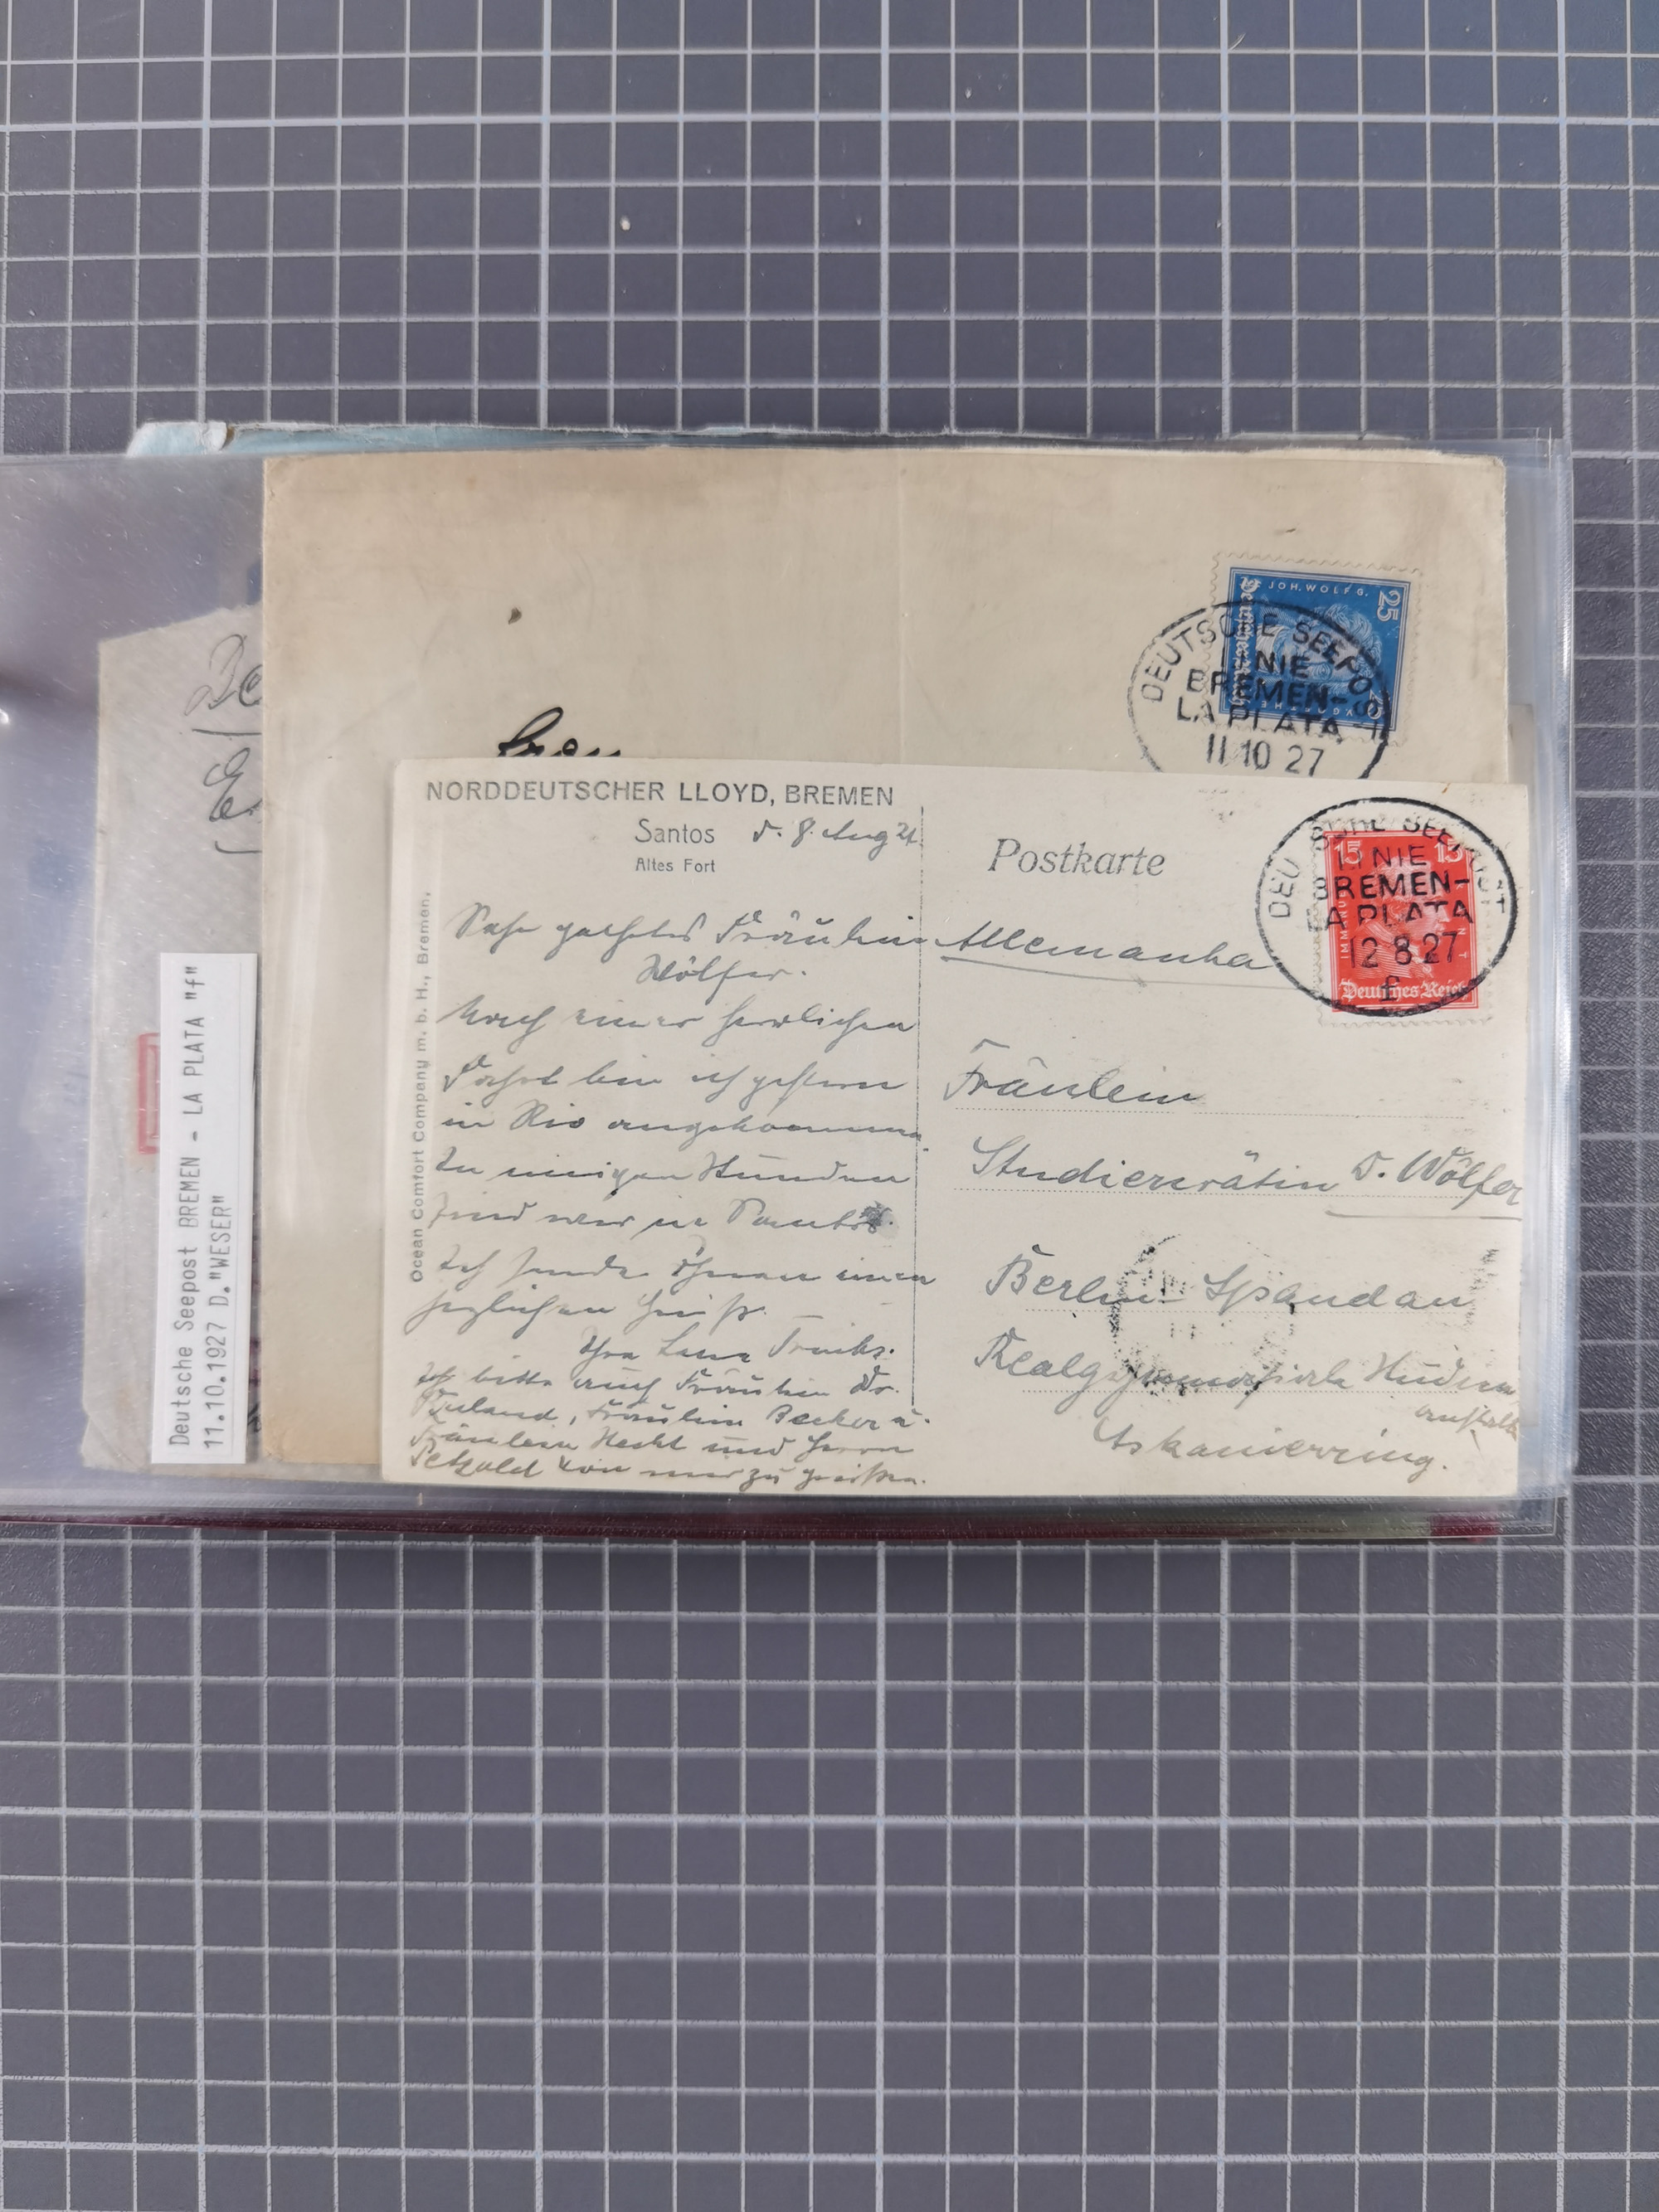 Deutsche Seepost BREMEN - LA PLATA "f"
11.10.1927 D."WESER"
JOH.WOLFG.
25
DEUTSCHE SEEPOST
LINIE
BREMEN-
LA PLATA
11 10 27
NORDDEUTSCHER LLOYD, BREMEN
Santos d. 8. Aug 27.
Altes Fort
Ocean Comfort Company m. b. H., Bremen.
Sehr geehrtes Fräulein
Wölfer.
Nach einer herrlichen
Fahrt bin ich gestern
in Rio angekommen.
In einigen Stunden
sind wir in Santos.
Ich sende Ihnen einen
herzlichen Gruß.
Ihre
Ich bitte auch Fräulein Dr.
Ruland, Fräulein Becker u.
Fräulein Hecht und Herrn
Petzold von mir zu grüßen.
Postkarte
Allemanha
15 15
Deutsches Reich
DEUTSCHE SEEPOST
LINIE
BREMEN-
LA PLATA
12 8 27
f
Fräulein
Studienrätin D. Wölfer
Berlin-Spandau
Realgymnasiale Studien
anstalt
Askanierring.